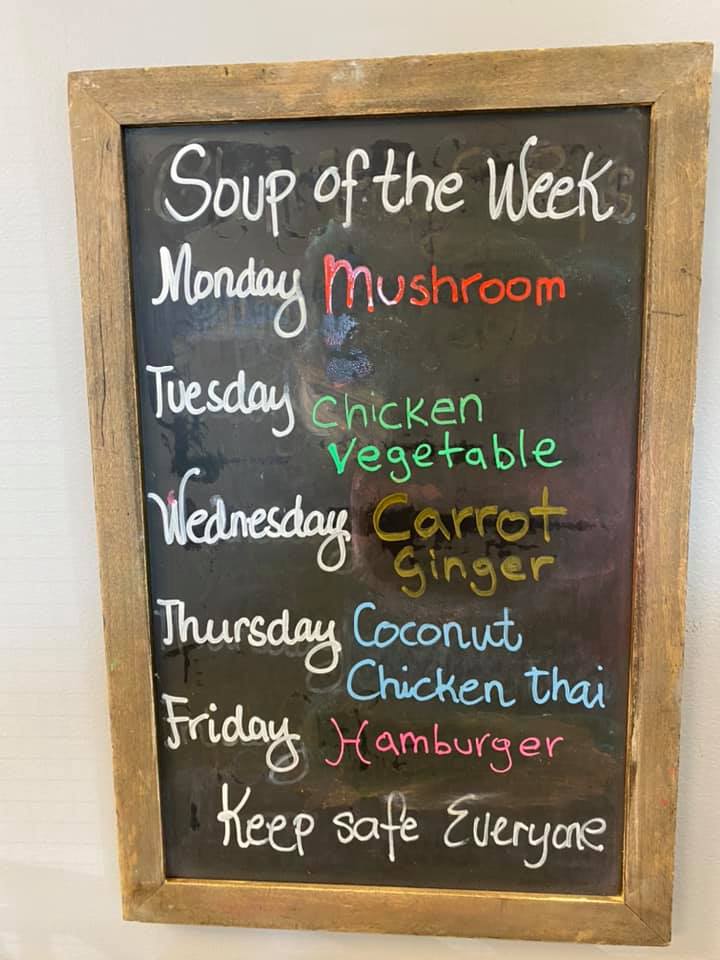 Soup of the Week
Monday Mushroom
Tuesday Chicken
Vegetable
Wednesday Carrot
Ginger
Thursday Coconut
Chicken thai
Friday Hamburger
Keep safe Everyone